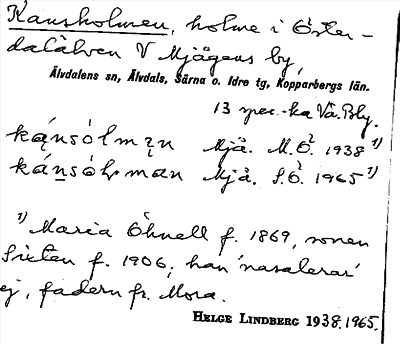 Kansholmen, holme i Öster-
dalälven V Mjågens by,
Älvdalens sn, Älvdals, Särna o. Idre tg, Kopparbergs län.
13 spec.-ka Va. Bly.
ką́nsólmąn Mjå. M.Ö. 1938 1)
kánsólman Mjå. S.Ö. 1965 1)
1) Maria Öhnell f. 1869, sonen
Sixten f. 1906; han 'nasalerar'
ej, fadern fr. Mora.
HELGE LINDBERG 1938. 1965.